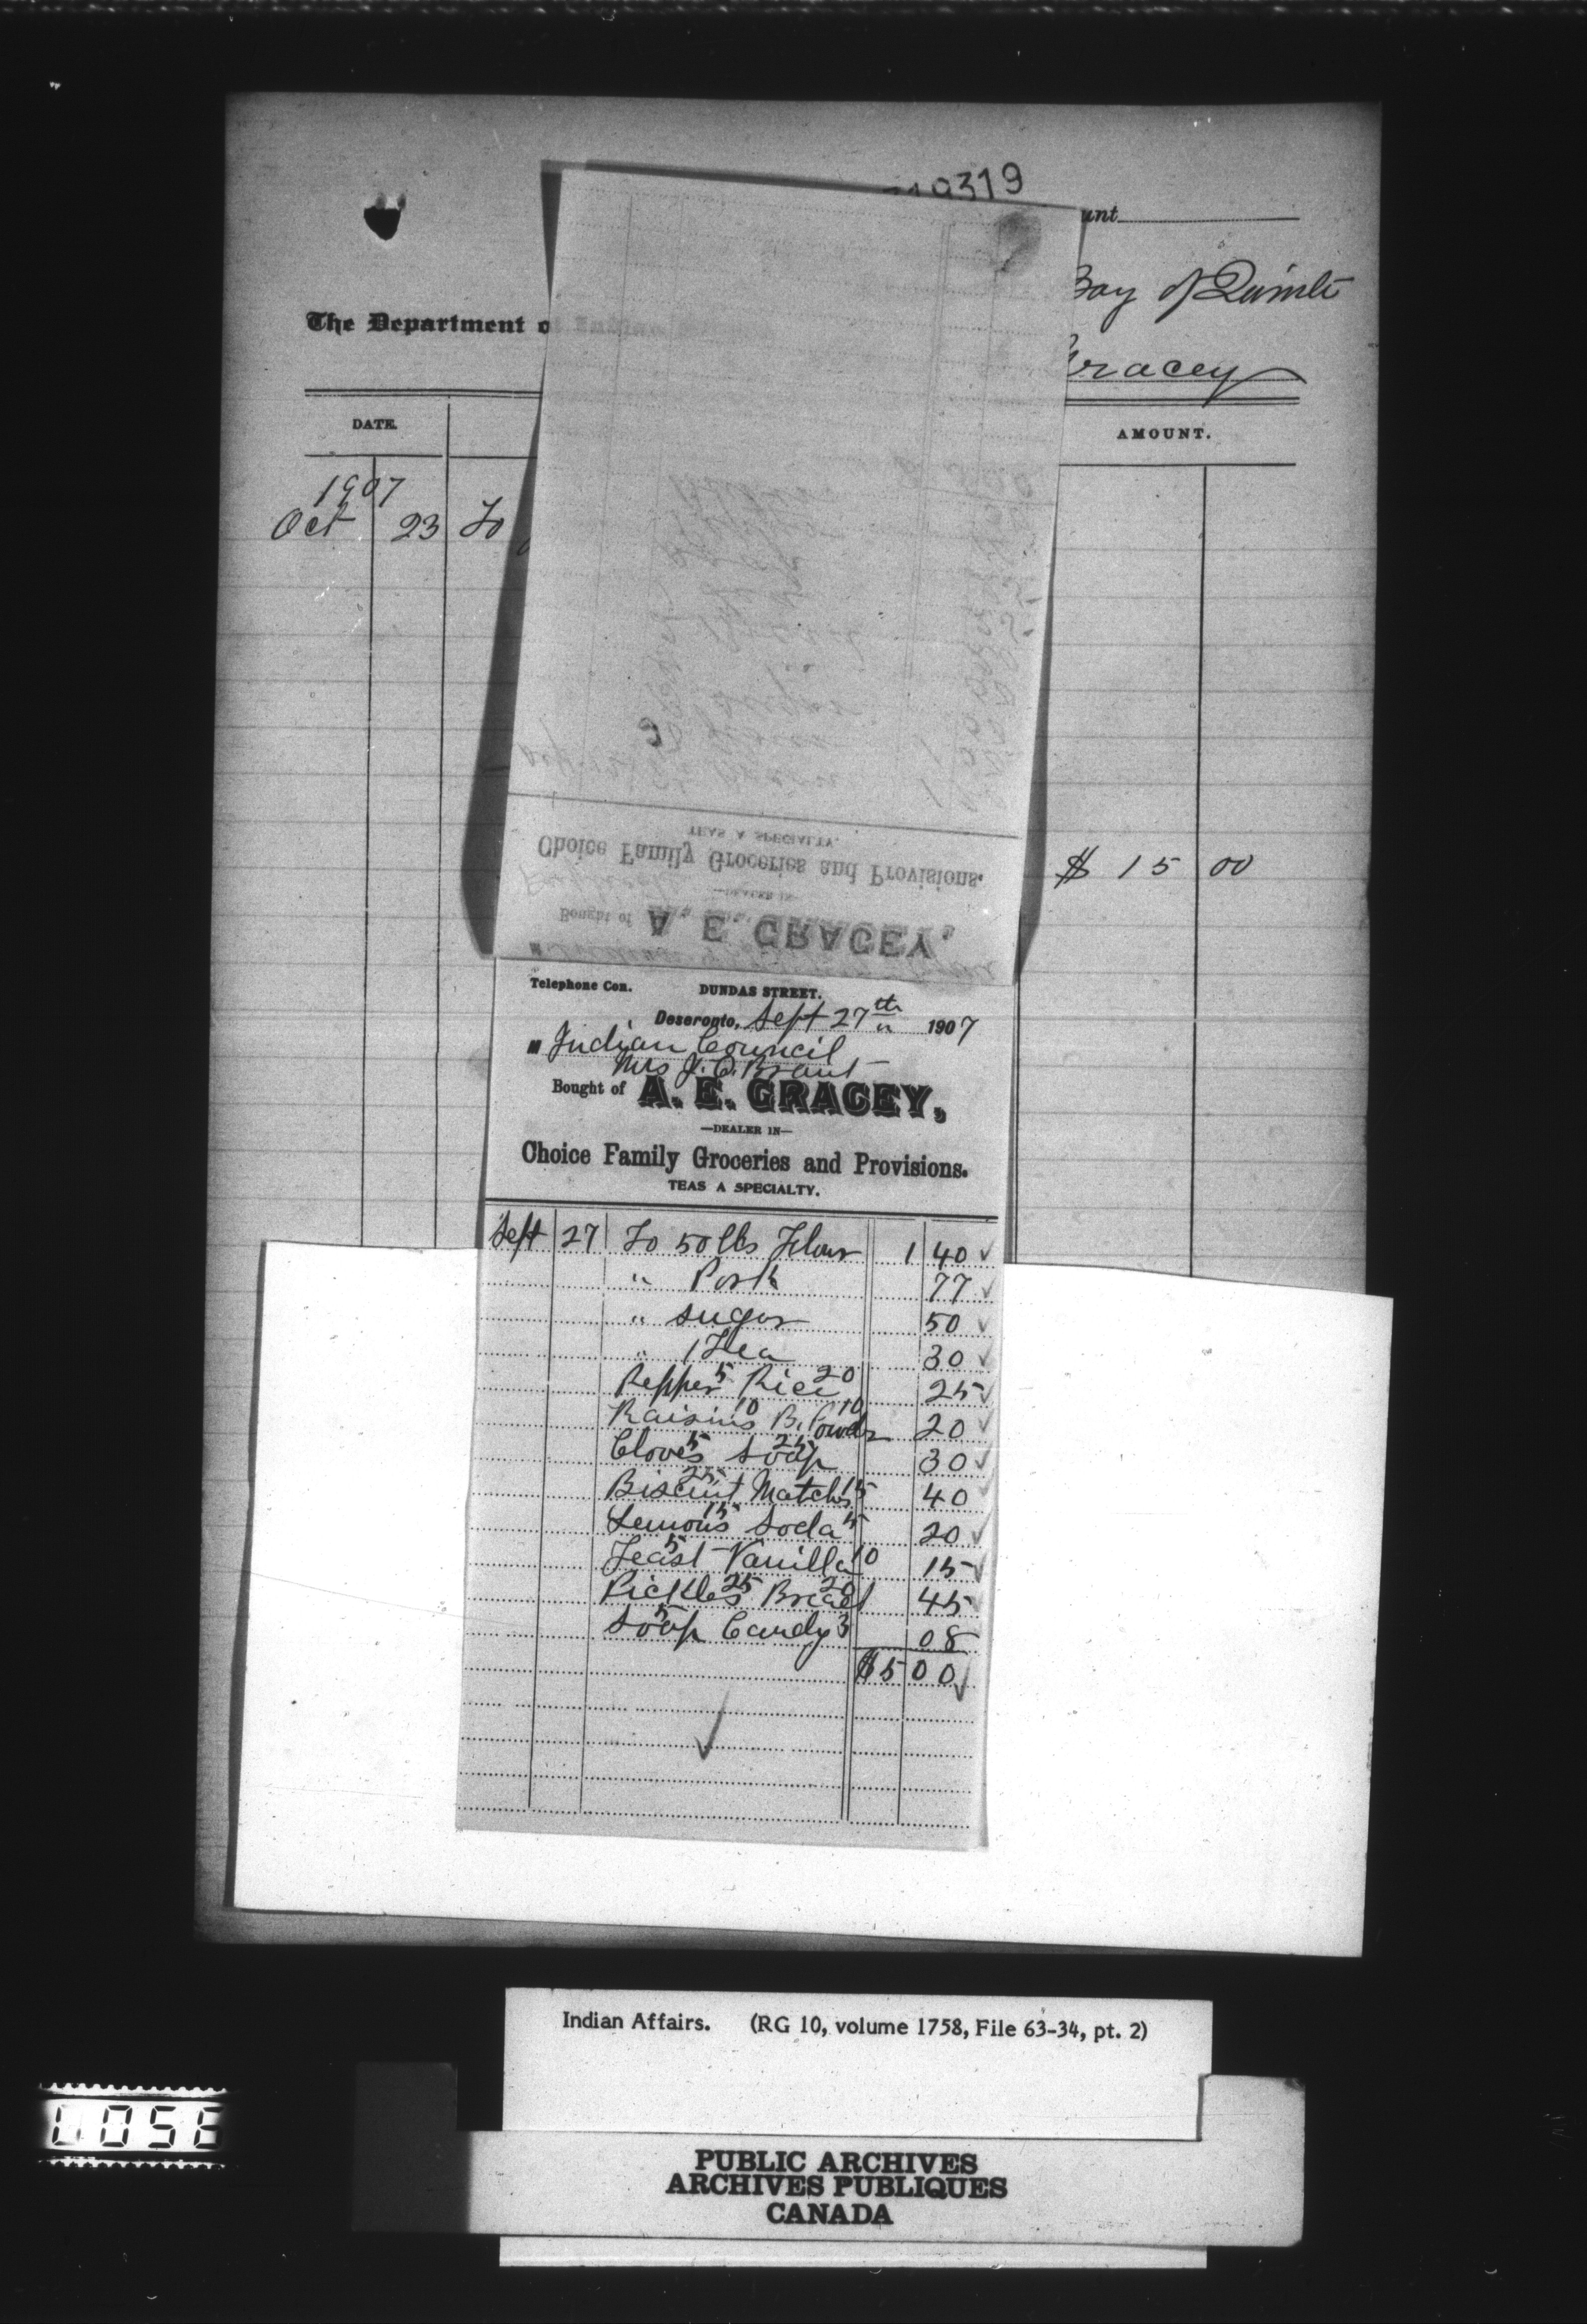 19319
Bay of Quinte
The Department of Indian
Gracey
DATE.
AMOUNT.
1907
Oct 23 To
$ 15 00
TEAS A SPECIALTY.
Choice Family Groceries and Provisions.
—DEALER IN—
Bought of A. E. GRACEY,
Telephone Con. DUNDAS STREET.
Deseronto, Sept 27th 1907
M Indian Council
Mrs J. C. Brant
Bought of A. E. GRACEY,
—DEALER IN—
Choice Family Groceries and Provisions.
TEAS A SPECIALTY.
Sept 27 To 50 lbs Flour 1 40
" Pork 77
" Sugar 50
" 1 Tea 30
Pepper 5 Rice 20 25
Raisins 10 B. Powder 10 20
Cloves 5 Soap 25 30
Biscuit 25 Matches 15 40
Lemons 15 Soda 5 20
Yeast 5 Vanilla 10 15
Pickles 25 Bread 20 45
Soap 5 Candy 3 08
$5 00
Indian Affairs. (RG 10, volume 1758, File 63-34, pt. 2)
PUBLIC ARCHIVES
ARCHIVES PUBLIQUES
CANADA